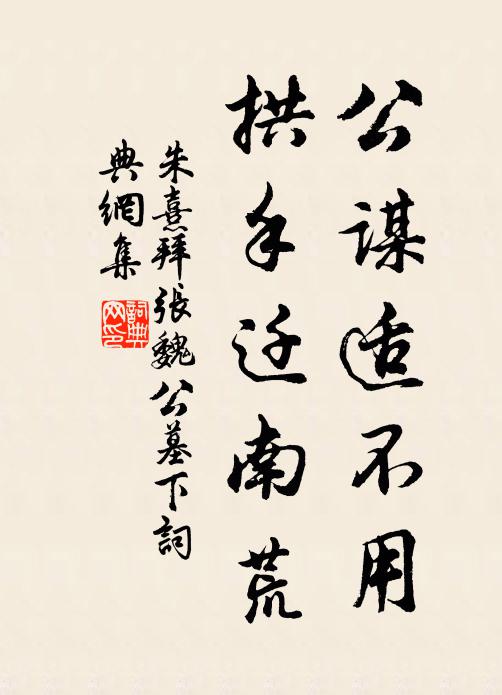 公谋适不用
拱手迁南荒
朱熹拜張魏公墓下詞
典網集
詞典网印